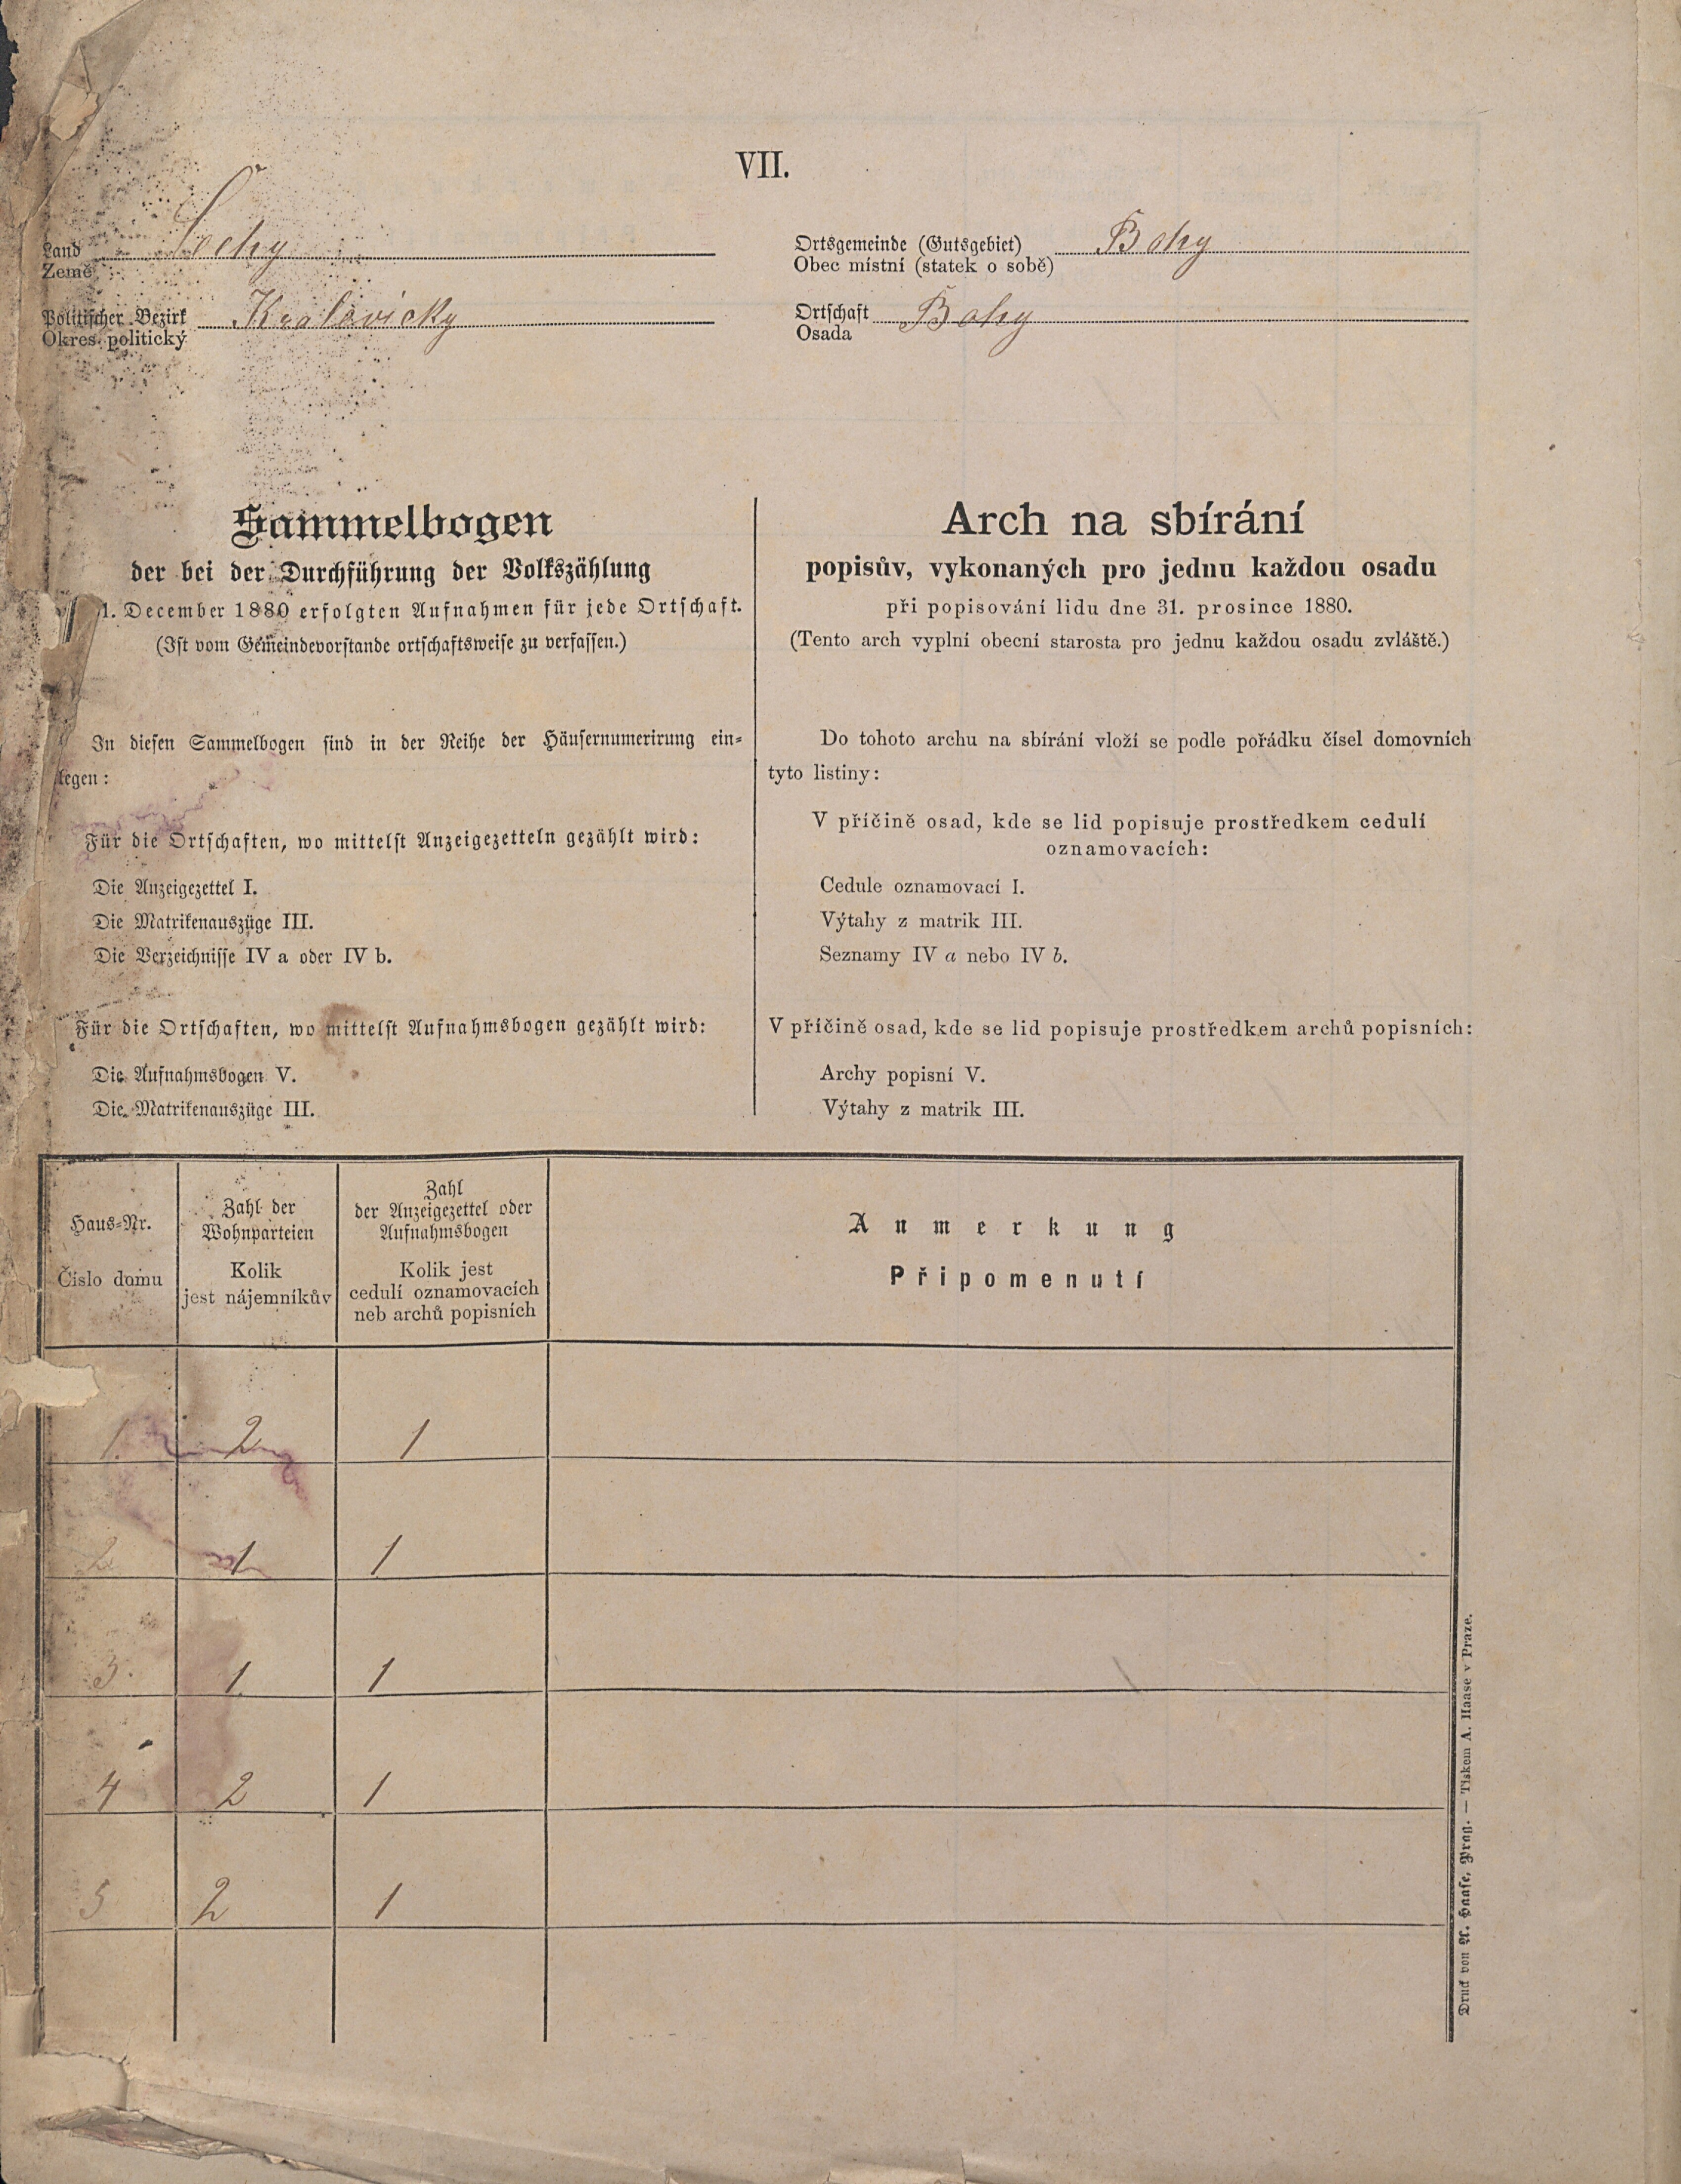 VII.
Land Čechy
Země
Politischer Bezirk Kralovicky
Okres politický
Ortsgemeinde (Gutsgebiet) Bohy
Obec místní (statek o sobě)
Ortschaft Bohy
Osada
Sammelbogen
der bei der Durchführung der Volkszählung
1. December 1880 erfolgten Aufnahmen für jede Ortschaft.
(Ist vom Gemeindevorstande ortschaftsweise zu verfassen.)
In diesen Sammelbogen sind in der Reihe der Häusernumerirung ein-
legen:
Für die Ortschaften, wo mittelst Anzeigezetteln gezählt wird:
Die Anzeigezettel I.
Die Matrikenauszüge III.
Die Verzeichnisse IV a oder IV b.
Für die Ortschaften, wo mittelst Aufnahmsbogen gezählt wird:
Die Aufnahmsbogen V.
Die Matrikenauszüge III.
Arch na sbírání
popisův, vykonaných pro jednu každou osadu
při popisování lidu dne 31. prosince 1880.
(Tento arch vyplní obecní starosta pro jednu každou osadu zvláště.)
Do tohoto archu na sbírání vloží se podle pořádku čísel domovních
tyto listiny:
V příčině osad, kde se lid popisuje prostředkem cedulí
oznamovacích:
Cedule oznamovací I.
Výtahy z matrik III.
Seznamy IV a nebo IV b.
V příčině osad, kde se lid popisuje prostředkem archů popisních:
Archy popisní V.
Výtahy z matrik III.
Haus-Nr.
Číslo domu
Zahl der
Wohnparteien
Kolik
jest nájemníkův
Zahl
der Anzeigezettel oder
Aufnahmsbogen
Kolik jest
cedulí oznamovacích
neb archů popisních
Anmerkung
Připomenutí
1. 2 1
2 1 1
3. 1 1
4 2 1
5 2 1
Druck von A. Haase, Prag. — Tiskem A. Haase v Praze.